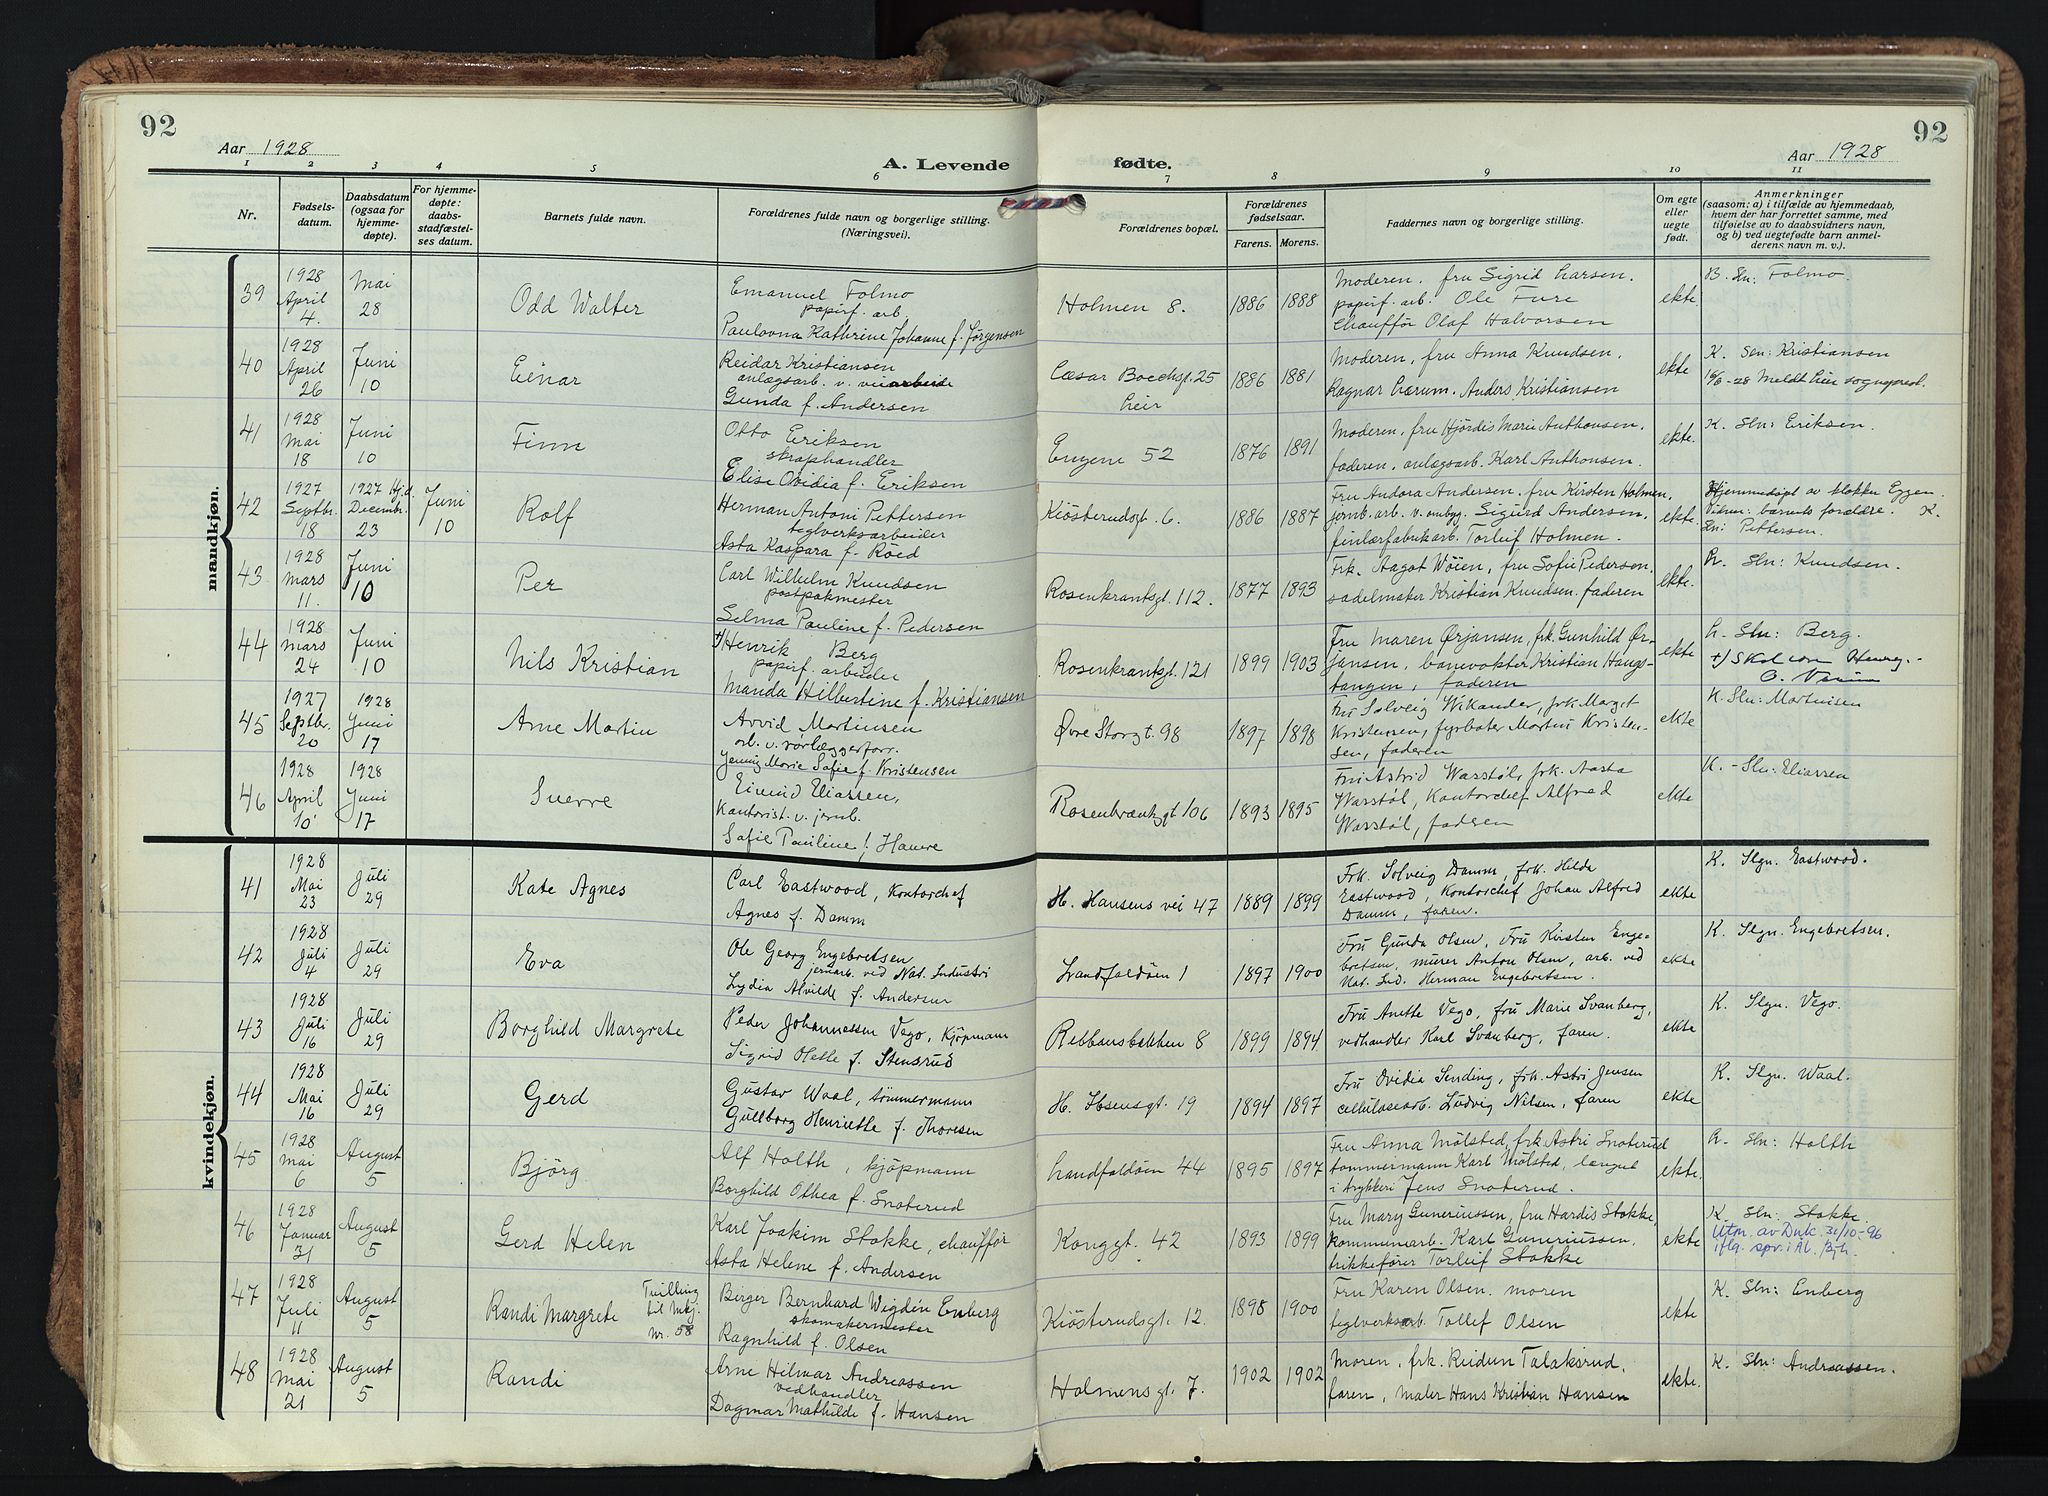 92
Aar 1928
A. Levende
fødte.
Aar 1928
92
1 2 3 4 5 6 7 8 9 10 11
Nr.
Fødsels-
datum.
Daabsdatum
(ogsaa for
hjemme-
døpte).
For hjemme-
døpte:
daabs-
stadfæstel-
ses datum.
Barnets fulde navn.
Forældrenes fulde navn og borgerlige stilling.
(Næringsvei).
Forældrenes bopæl.
Forældrenes
fødselsaar.
Farens. Morens.
Faddernes navn og borgerlige stilling.
Om egte
eller
uegte
født.
Anmerkninger
(saasom: a) i tilfælde av hjemmedaab,
hvem der har forrettet samme, med
tilføielse av to daabsvidners navn,
og b) ved uegtefødte barn anmel-
derens navn m. v.).
mandkjøn.
39
1928
April
4.
Mai
28
Odd Walter
Emanuel Folmo
papirf. arb.
Paulovna Kathrine Johanne f. Jørgensen
Holmen 8.
1886 1888
Moderen. fru Sigrid Larsen.
papirf. arb. Ole Fure
Chauffør Olaf Halvorsen
ekte.
B. Sln: Folmo.
40
1928
April
26
Juni
10
Einar
Reidar Kristiansen
anlægsarb. v. veiarbeide
Gunda f. Andersen
Cæsar Boecksgt. 25
Lier
1886 1881
Moderen, fru Anna Knudsen.
Ragnar Lærum. Anders Kristiansen
ekte
K. Sln: Kristiansen
16/6-28 Meldt Lier sogneprest.
41
1928
Mai
18
Juni
10
Finn
Otto Eriksen
skraphandler
Elise Ovidia f. Eriksen
Engene 52
1876 1891
Moderen, fru Hjørdis Marie Anthonsen,
faderen, anlægsarb. Karl Anthonsen.
ekte.
K. Sln: Eriksen.
42
1927
Septbr.
18
1927 Hj.d.
Decembr.
23
Juni
10
Rolf
Herman Antoni Pettersen
teglverksarbeider
Asta Kaspara f. Røed
Kiøsterudsgt. 6.
1886 1887
Fru Andora Andersen. fru Kirsten Holmen,
jernb. arb. v. ombyg. Sigurd Andersen,
finlærfabrikarb. Torleif Holmen.
ekte.
Hjemmedøpt av klokker Eggen.
Vitner: barnets forældre. K.
Sln: Pettersen.
43
1928
Mars
11.
Juni
10
Per
Carl Wilhelm Knudsen
postpakmester
Selma Pauline f. Pedersen
Rosenkrantsgt. 112.
1877 1893
Frk. Aagot Wøien, fru Sofie Pedersen,
sadelmaker Kristian Knudsen. faderen
ekte.
Sln: Knudsen.
44
1928
Mars
24
Juni
10
Nils Kristian
+) Henrik Berg
papirf. arbeider
Manda Hilbertine f. Kristiansen
Rosenkrantsgt. 121
1899 1903
Fru Maren Ørjansen, frk. Gunhild Ør-
jansen, banevokter Kristian Haugs-
tangen, faderen
ekte
Sln: Berg.
+) Skal være Henry.
45
1927
Septbr.
20
1928
Juni
17
Arne Martin
Arvid Martinsen
arb. v. rørlæggerforr.
Jenny Marie Sofie f. Kristensen
Øvre Storgt. 98
1897 1898
Fru Solveig Wikander, frk. Margit
Kristensen, fyrbøter Martin Kristen-
sen, faderen
ekte
K. Sln: Martinsen
46
1928
April
10
1928
Juni
17
Sverre
Eivind Eliassen,
Kontorist v. jernb.
Sofie Pauline f. Hauvre
Rosenkrantzgt 106
1893 1895
Fru Astrid Warstøl, frk. Aasta
Warstøl, Kontorchef Alfred
Warstøl, faderen
ekte
K. - Sln: Eliassen
kvindekjøn.
41
1928
Mai
23
Juli
29
Kate Agnes
Carl Eastwood, Kontorchef
Agnes f. Damm
H. Hansens vei 47
1889 1899
Frk. Solveig Damm, frk. Hilda
Eastwood, Kontorchef Johan Alfred
Damm, faren.
ekte
K. Slgn. Eastwood.
42
1928
Juli
4
Juli
29
Eva
Ole Georg Engebretsen
jernarb. ved Nat. Industri
Lydia Alvilde f. Andersen
Landfaldøen 1
1897 1900
Fru Gunda Olsen, Fru Kirsten Enge-
bretsen, murer Anton Olsen, arb. ved
Nat. Ind. Herman Engebretsen.
ekte
K. Slgn. Engebretsen.
43
1928
Juli
16
Juli
29
Borghild Margrete
Peder Johannessen Vego, Kjøpmann
Sigrid Olette f. Stensrud
Rebbansbakken 8
1899 1894
Fru Anette Vego, fru Marie Svanberg,
vedhandler Karl Svanberg, faren.
ekte
K. Slgn. Vego.
44
1928
Mai
16
Juli
29
Gerd
Gustav Waal, tømmermann
Gullborg Henriette f. Thoresen
H. Ibsensgt. 19
1894 1897
Fru Ovidia Sending, frk. Astri Jensen
cellulosearb. Ludvig Nilsen, faren
ekte
K. Slgn. Waal.
45
1928
Mai
6
August
5
Bjørg
Alf Holth, kjøpmann
Borghild Othea f. Snoterud
Landfaldøen 44
1895 1897
Fru Anna Mølsted, frk Astri Snoterud
tømmermann Karl Mølsted,
i trykkeri Jens Snoterud.
ekte.
Sln: Holth
46
1928
Januar
31
August
5
Gerd Helen
Karl Joakim Stokke, chauffør
Asta Helene f. Andersen
Konggt. 42
1893 1899
Fru Mary Gunerinssen, fru Hardis Stokke,
kommunearb. Karl Gunerinssen.
trikkefører Torleif Stokke
ekte
K. Sln: Stokke
Utm. av Dnk. 31/10-96
iflg. spr. i Ål. Bjh.
47
1928
Juli
11
August
5
Randi Margrete
Tvilling
til Mkj.
Nr. 58
Birger Bernhard Wigdén Enberg
skomakermester
Ragnhild f. Olsen
Kiøsterudsgt. 12.
1898 1900
Fru Karen Olsen. moren
teglverksarb. Tollef Olsen
ekte
K. Sln: Enberg
48
1928
Mai
21
August
5
Randi
Arne Hilmar Andreassen
vedhandler
Dagmar Mathilde f. Hansen
Holmensgt. 7.
1902 1902
Moren, frk. Reidun Talaksrud.
faren, maler Hans Kristian Hansen
ekte.
K. Sln: Andreassen.